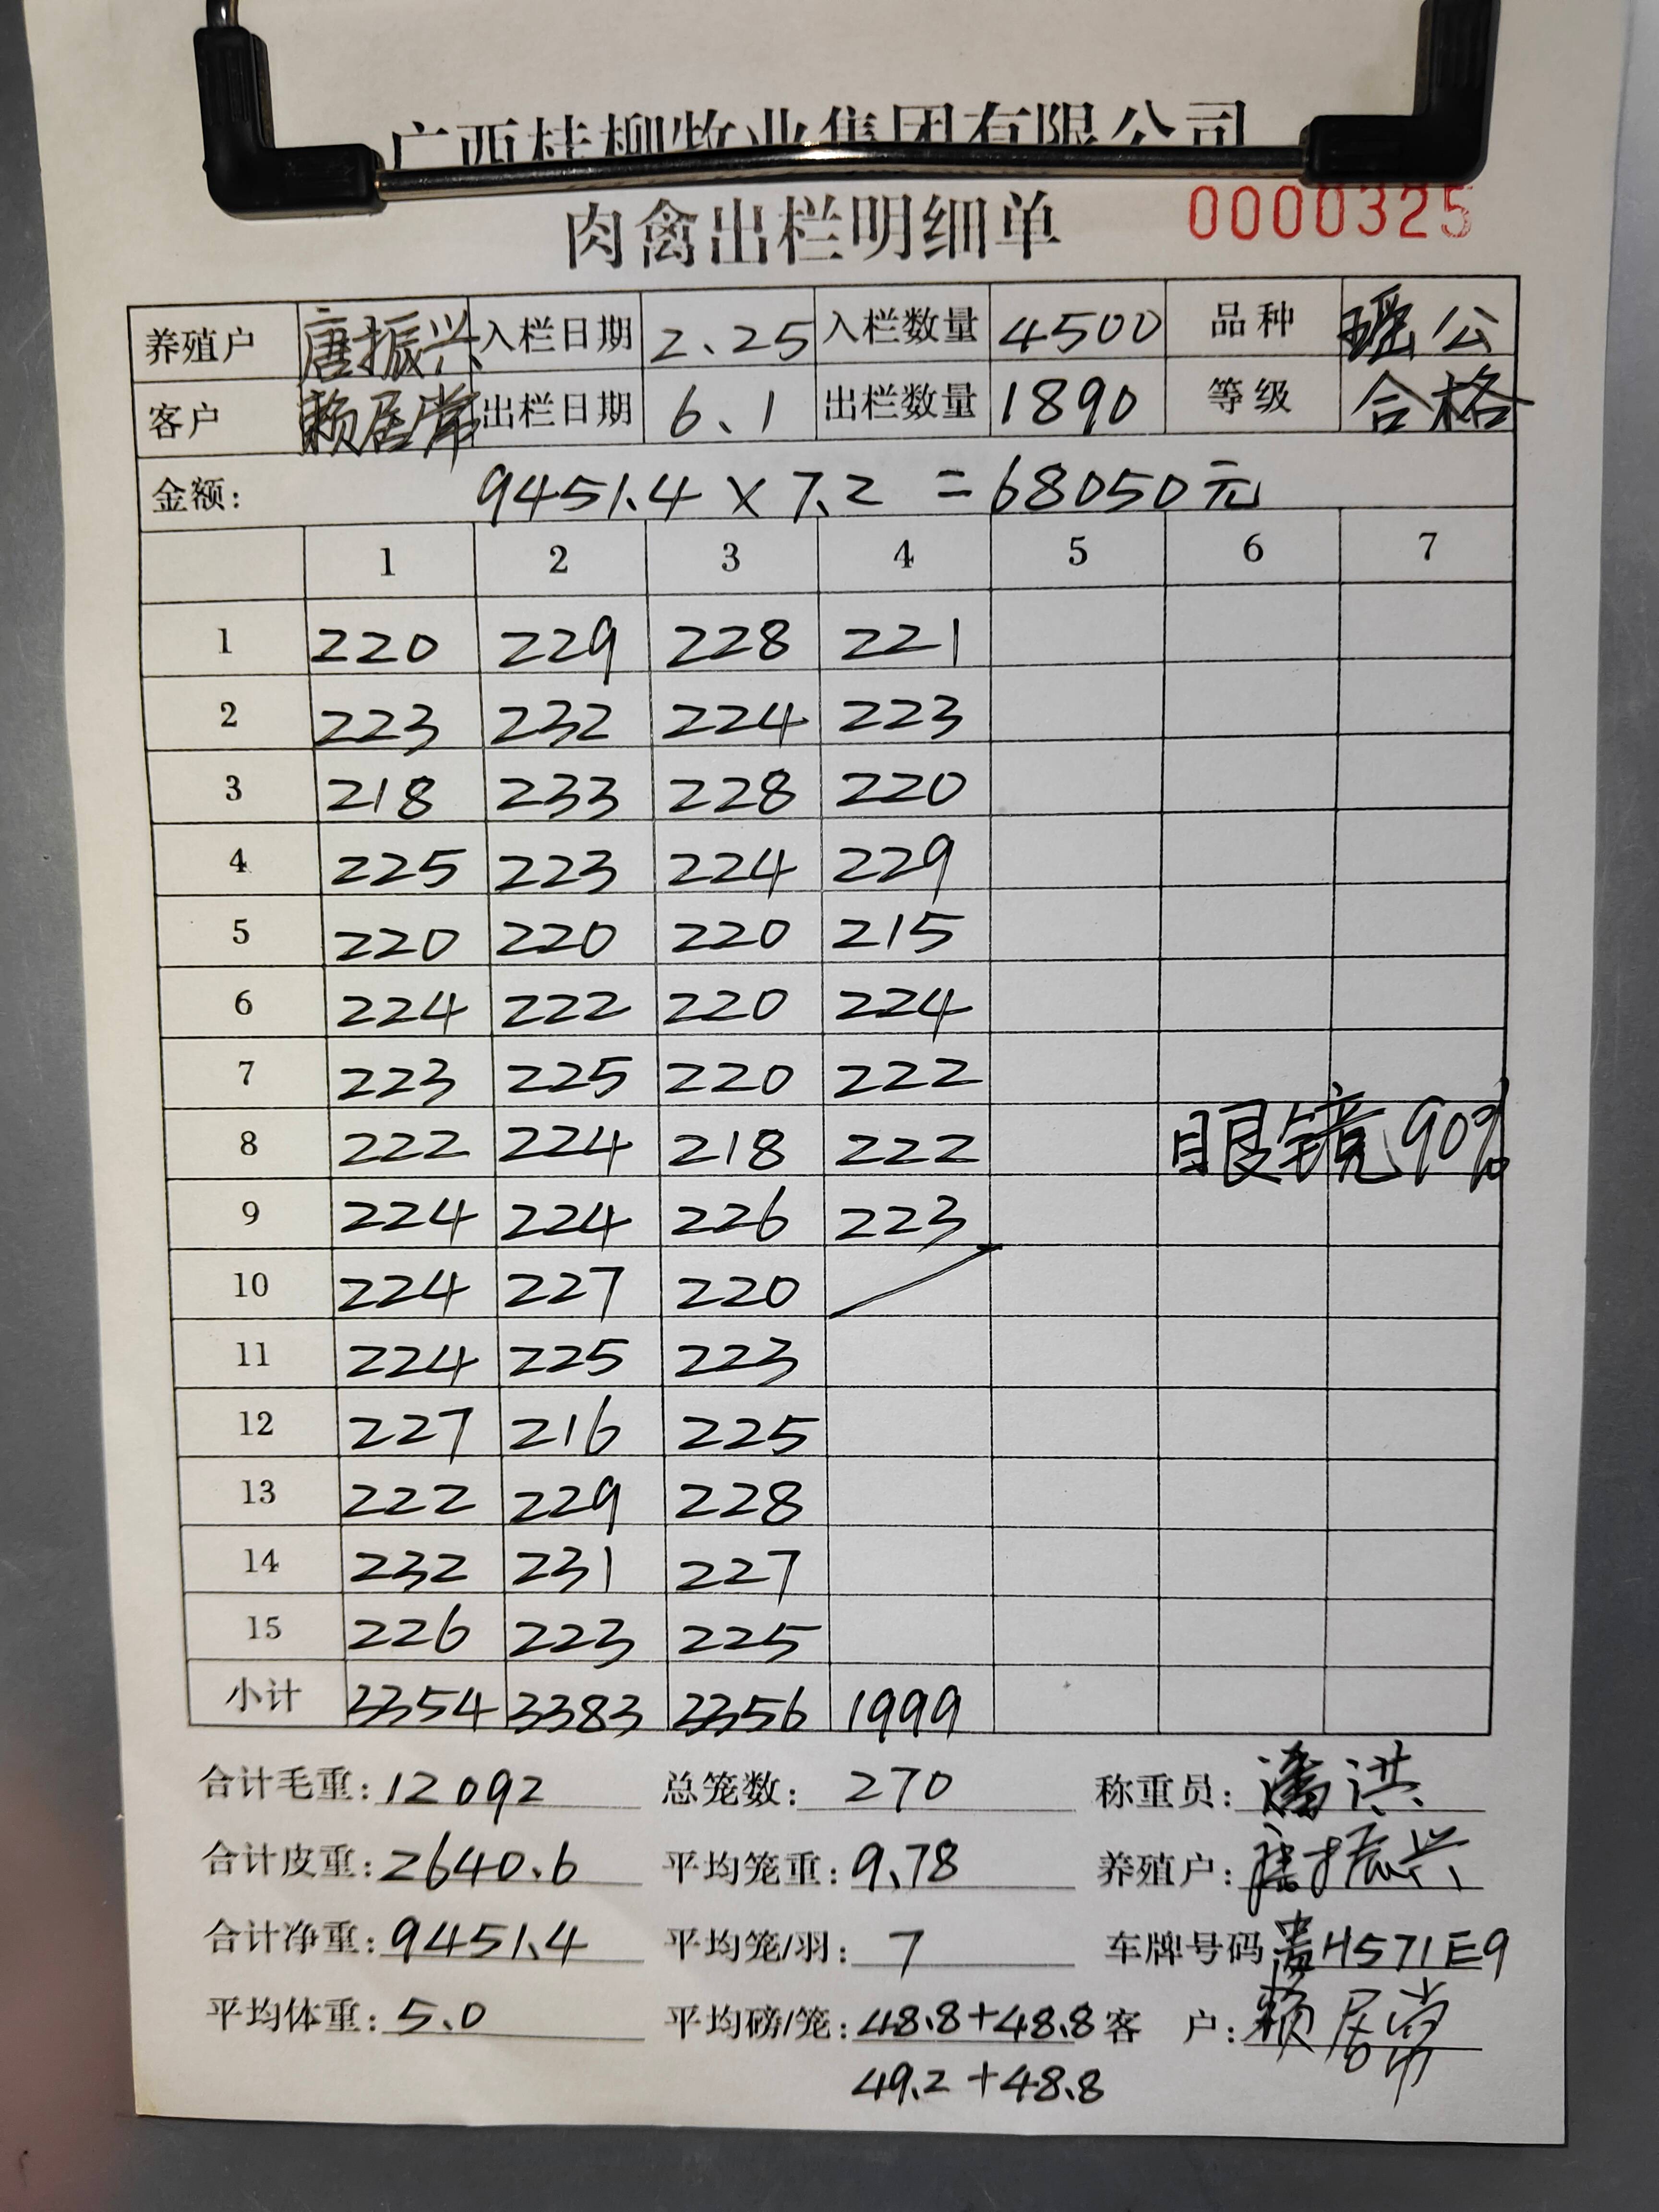 广西桂柳牧业集团有限公司
肉禽出栏明细单 0000325
养殖户 唐振兴 入栏日期 2.25 入栏数量 4500 品种 瑶公
客户 赖居常 出栏日期 6.1 出栏数量 1890 等级 合格
金额: 9451.4 × 7.2 = 68050元
1 2 3 4 5 6 7
1 220 229 228 221
2 223 232 224 223
3 218 233 228 220
4 225 223 224 229
5 220 220 220 215
6 224 222 220 224
7 223 225 220 222
8 222 224 218 222 眼镜90%
9 224 224 226 223
10 224 227 220
11 224 225 223
12 227 216 225
13 222 229 228
14 232 231 227
15 226 223 225
小计 3354 3383 3356 1999
合计毛重: 12092 总笼数: 270 称重员: 潘洪
合计皮重: 2640.6 平均笼重: 9.78 养殖户: 唐振兴
合计净重: 9451.4 平均笼/羽: 7 车牌号码 贵H571E9
平均体重: 5.0 平均磅/笼: 48.8+48.8 客 户: 赖居常
49.2+48.8